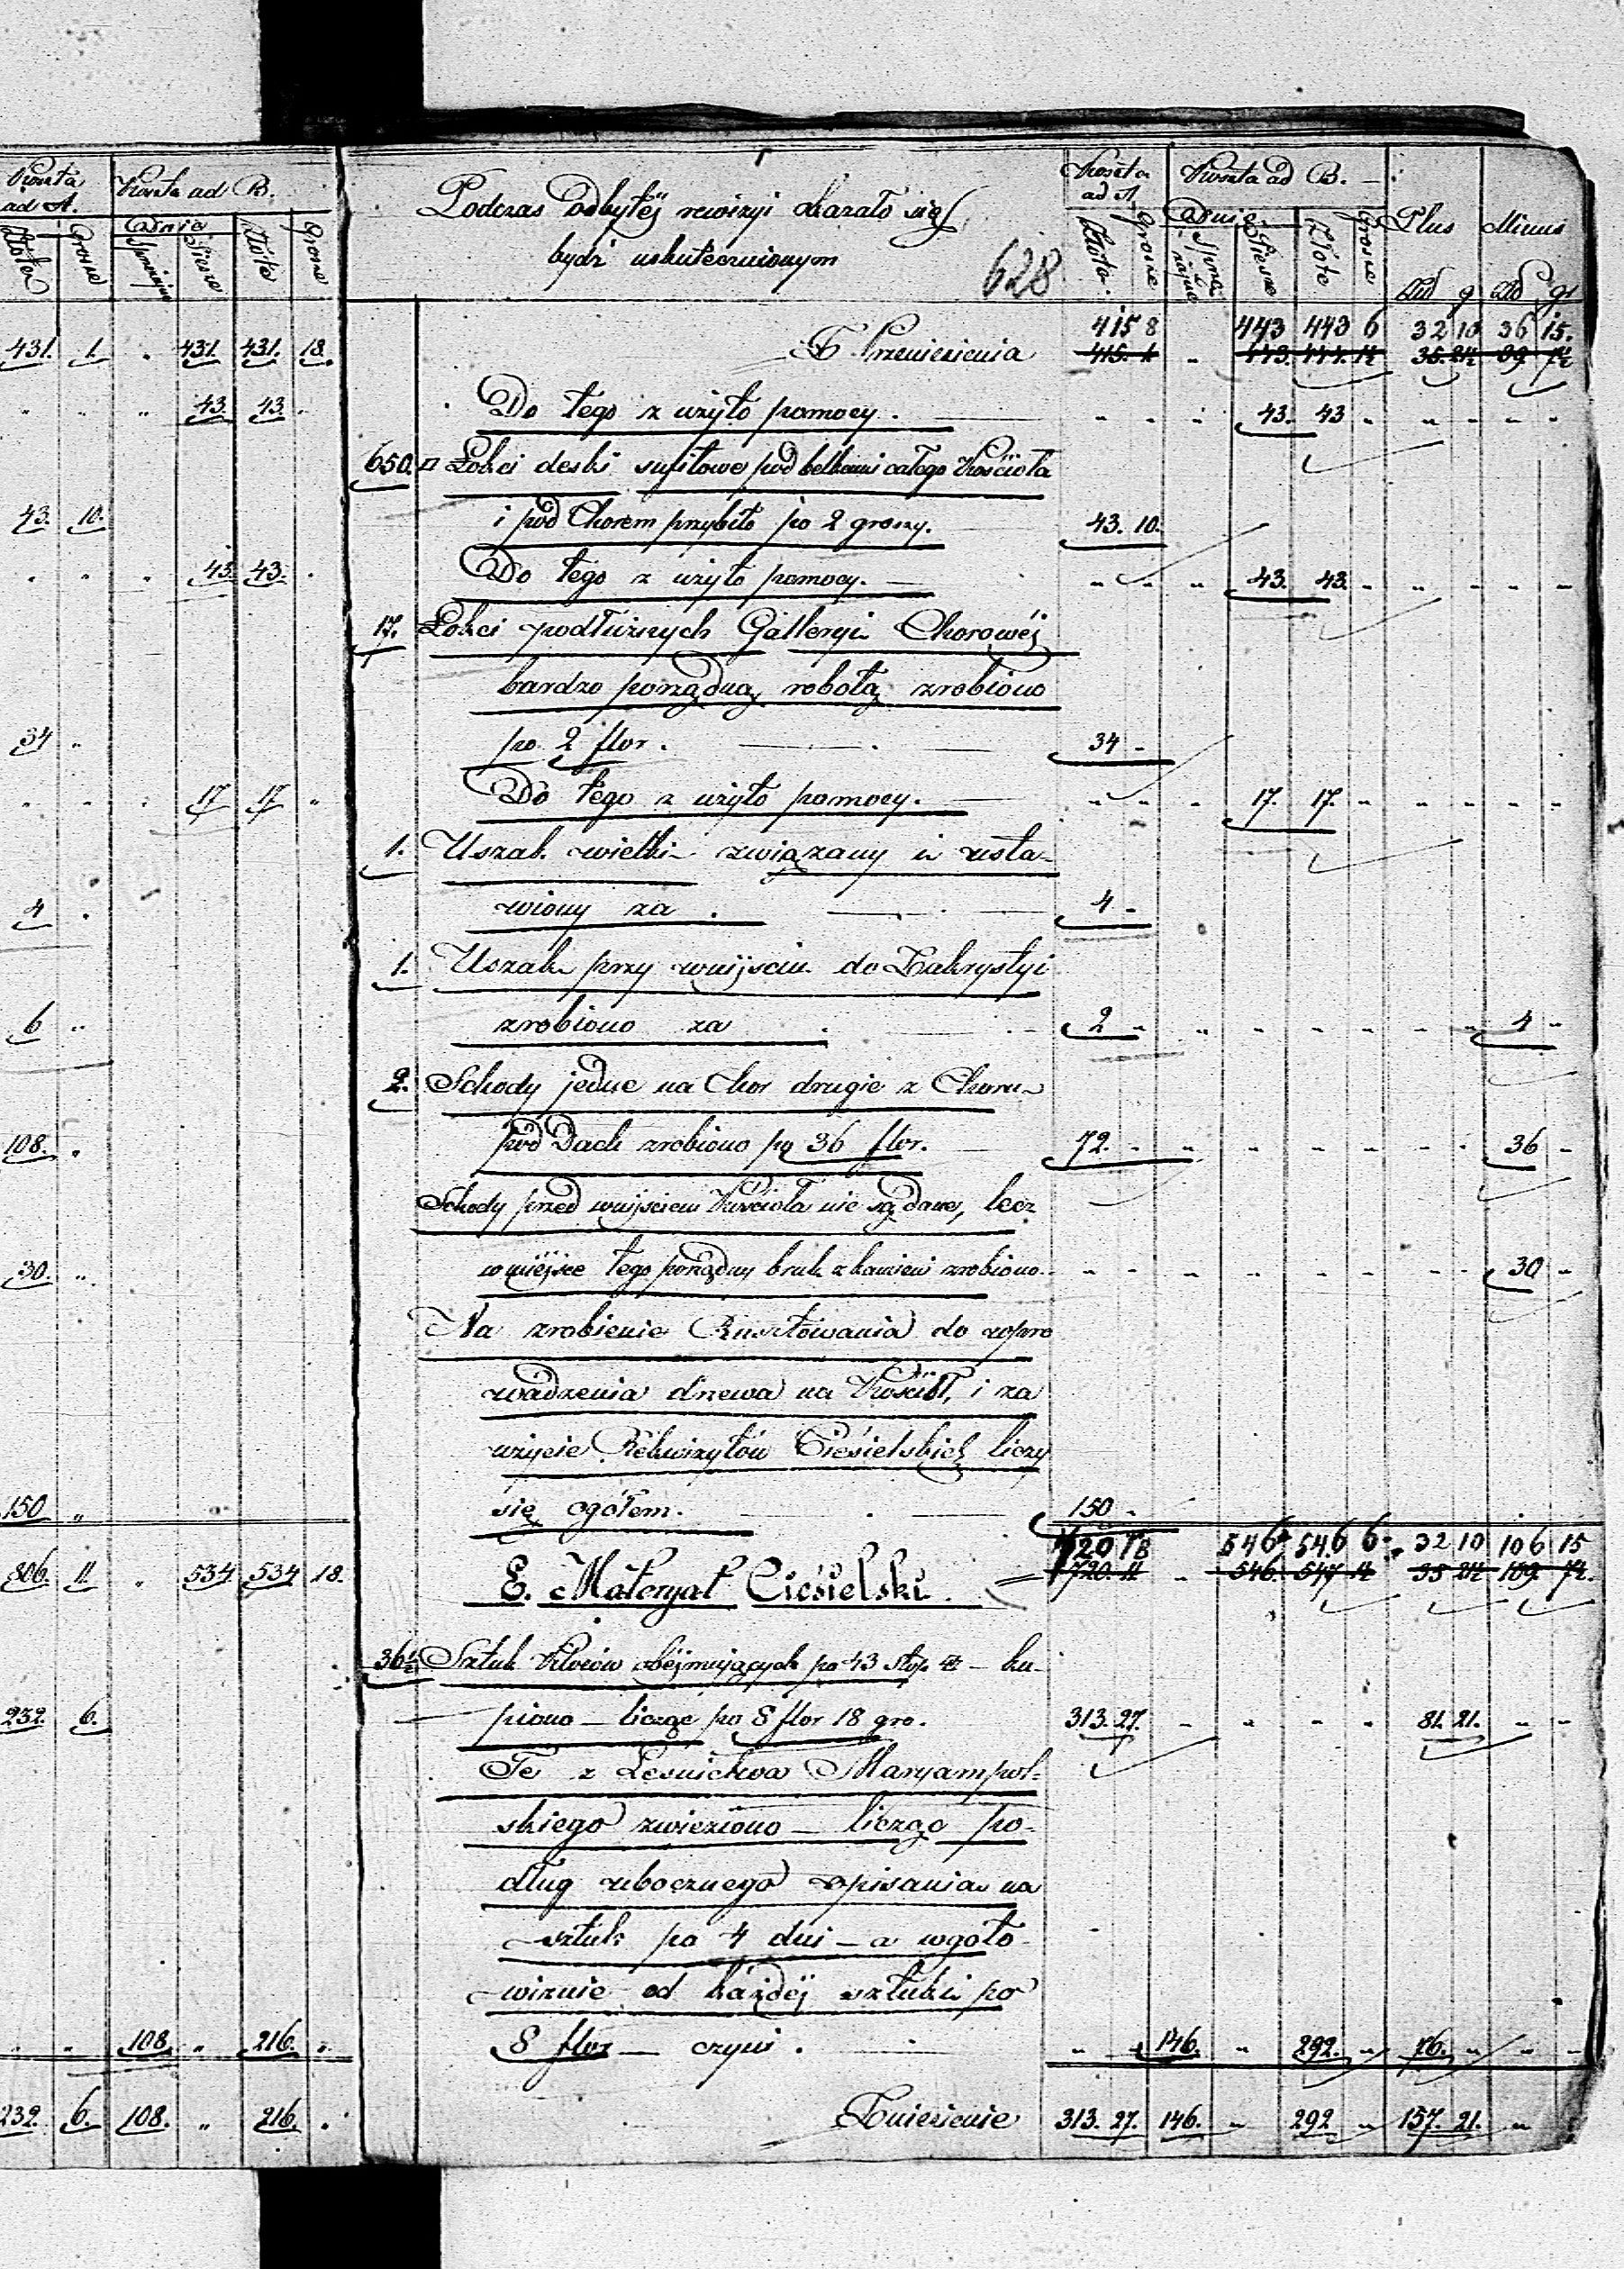 Koszta ad A. Koszta ad B.
Dnie
Złote Grosze Sprzężajne Piesze Złote Grosze
431. 1. „ 431. 431. 18.
„ „ „ 43. 43. „
43. 10.
„ „ „ 43. 43. „
34 „
„ „ „ 17 17 „
4 „
6 „
108. „
30. „
150 „
806. 11. „ 534 534 18.
232. 6.
„ „ 108. „ 216. „
232. 6. 108. „ 216. „
Podczas odbytéj rewizyi okazało się
bydź uskutecznionym
628
Koszta ad A. Koszta ad B. Plus Minus
Dnie
Złote Grosze Sprzężajne Piesze Złote Grosze Zł g Zł gr
415 8 443 443 6 32 10 36 15.
Z Przeniesienia
Do tego z użyto pomocy. „ „ „ 43. 43 „ „ „ „ „
650. □ Łokci deski sufitowe pod belkami całego Kościoła
i pod Chorem przybito po 2 groszy. 43. 10.
Do tego z użyto pomocy. „ „ „ 43. 43. „ „ „ „ „
17. Łokci podłużnych Galleryi Chorowéj
bardzo porządną robotą zrobiono
po 2 flor. 34 „
Do tego z użyto pomocy. „ „ „ 17. 17. „ „ „ „ „
1. Uszak wielki związany i usta-
wiony za 4 „
1. Uszak przy wnijściu do Zakrystyi
zrobiono za 2 „ „ „ „ „ „ „ 4 „
2. Schody jedne na Chor drugie z Choru
pod Dach zrobiono po 36 flor. 72. „ „ „ „ „ „ „ 36 „
Schody przed wnijściem Kościoła nie są dane, lecz
w miejsce tego porządny bruk z kamieni zrobiono. „ „ „ „ „ „ „ „ 30 „
Na zrobienie Rusztowania do wpro
wadzenia drzewa na Kościół, i za
użycie Rekwizytów Ciesielskich liczy
się ogółem. 150 „
720 18 546 546 6 32 10 106 15
E. Materyał Ciesielski. 720. 11 „ 546. 547 14
36½ Sztuk Kloców obejmujących po 43 stop □ ku-
piono licząc po 8 flor 18 gro. 313. 27. „ „ „ „ 81. 21. „ „
Te z Leśnictwa Maryampol-
skiego zwieziono licząc po-
dług ubocznego opisania na
sztuk po 4 dni a wgoto
wiznie od każdéj sztuki po
8 flor czyni. „ „ 146. „ 292. „ 76. „ „ „
Zniesienie 313. 27. 146. „ 292 „ 157. 21. „